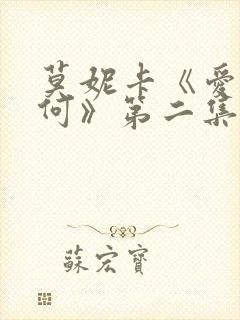 莫妮卡《爱
何》第二集
蘇宏寶